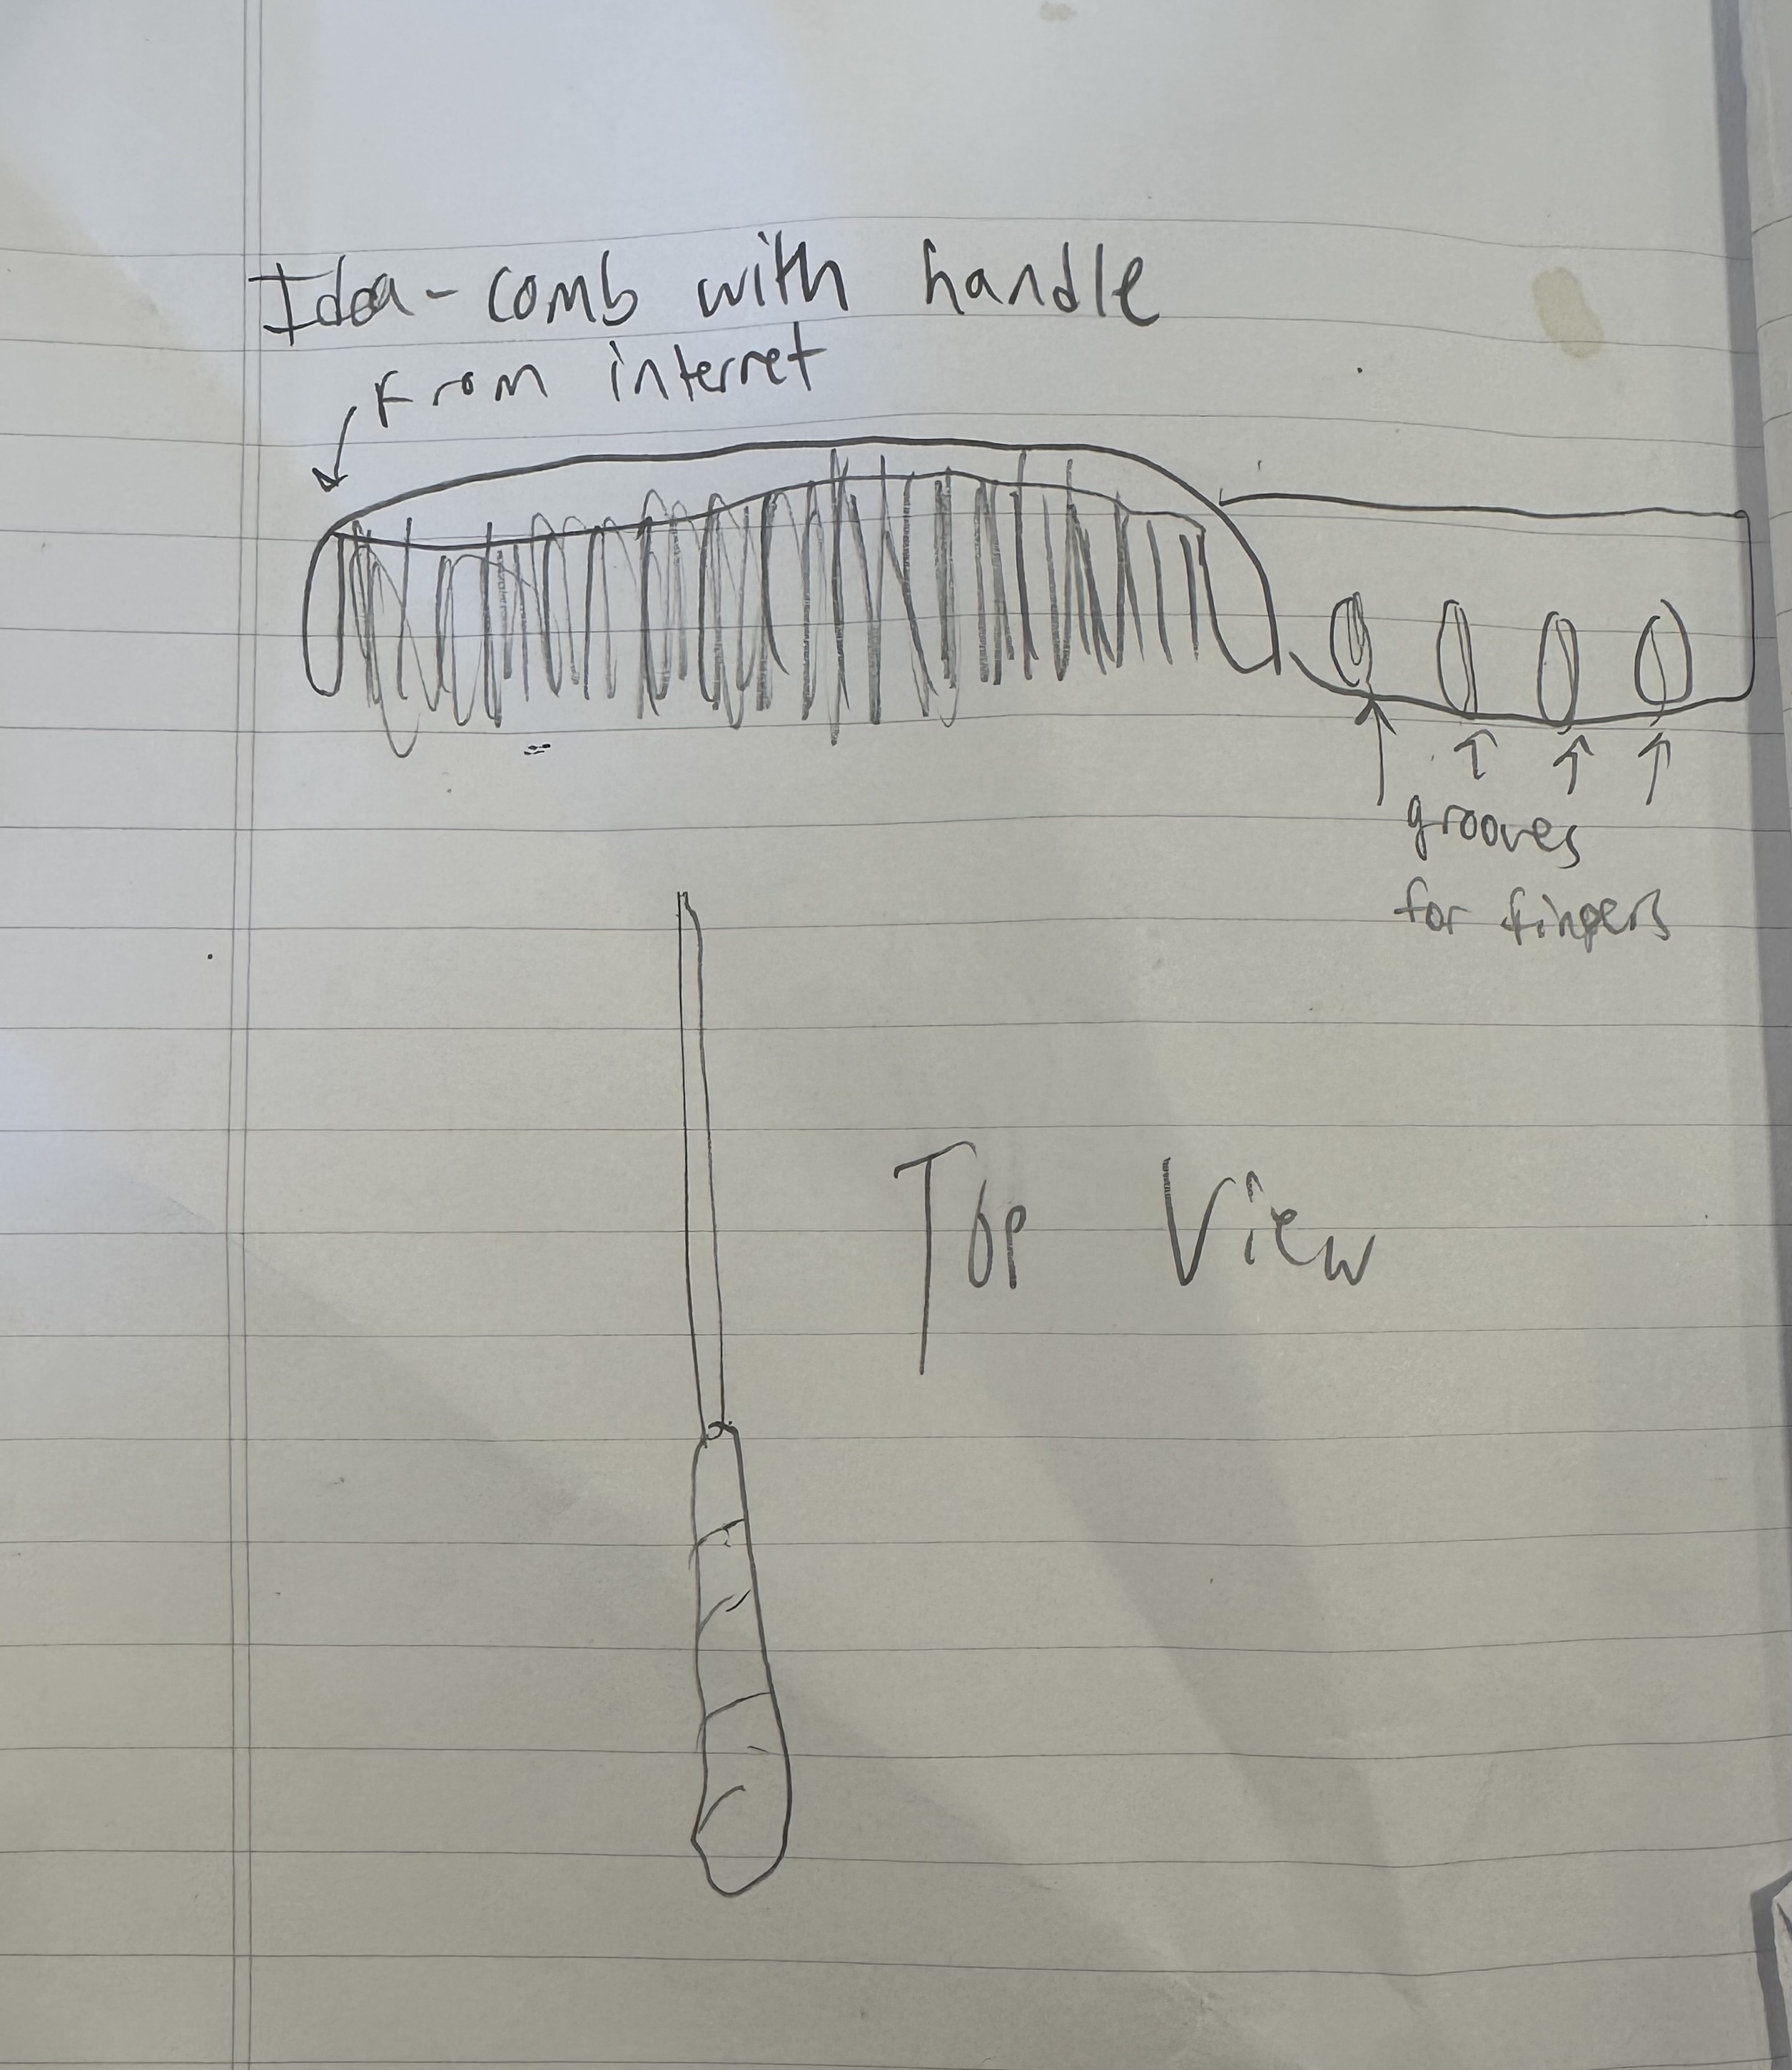 Idea - comb with handle
From internet
grooves
for fingers
Top View